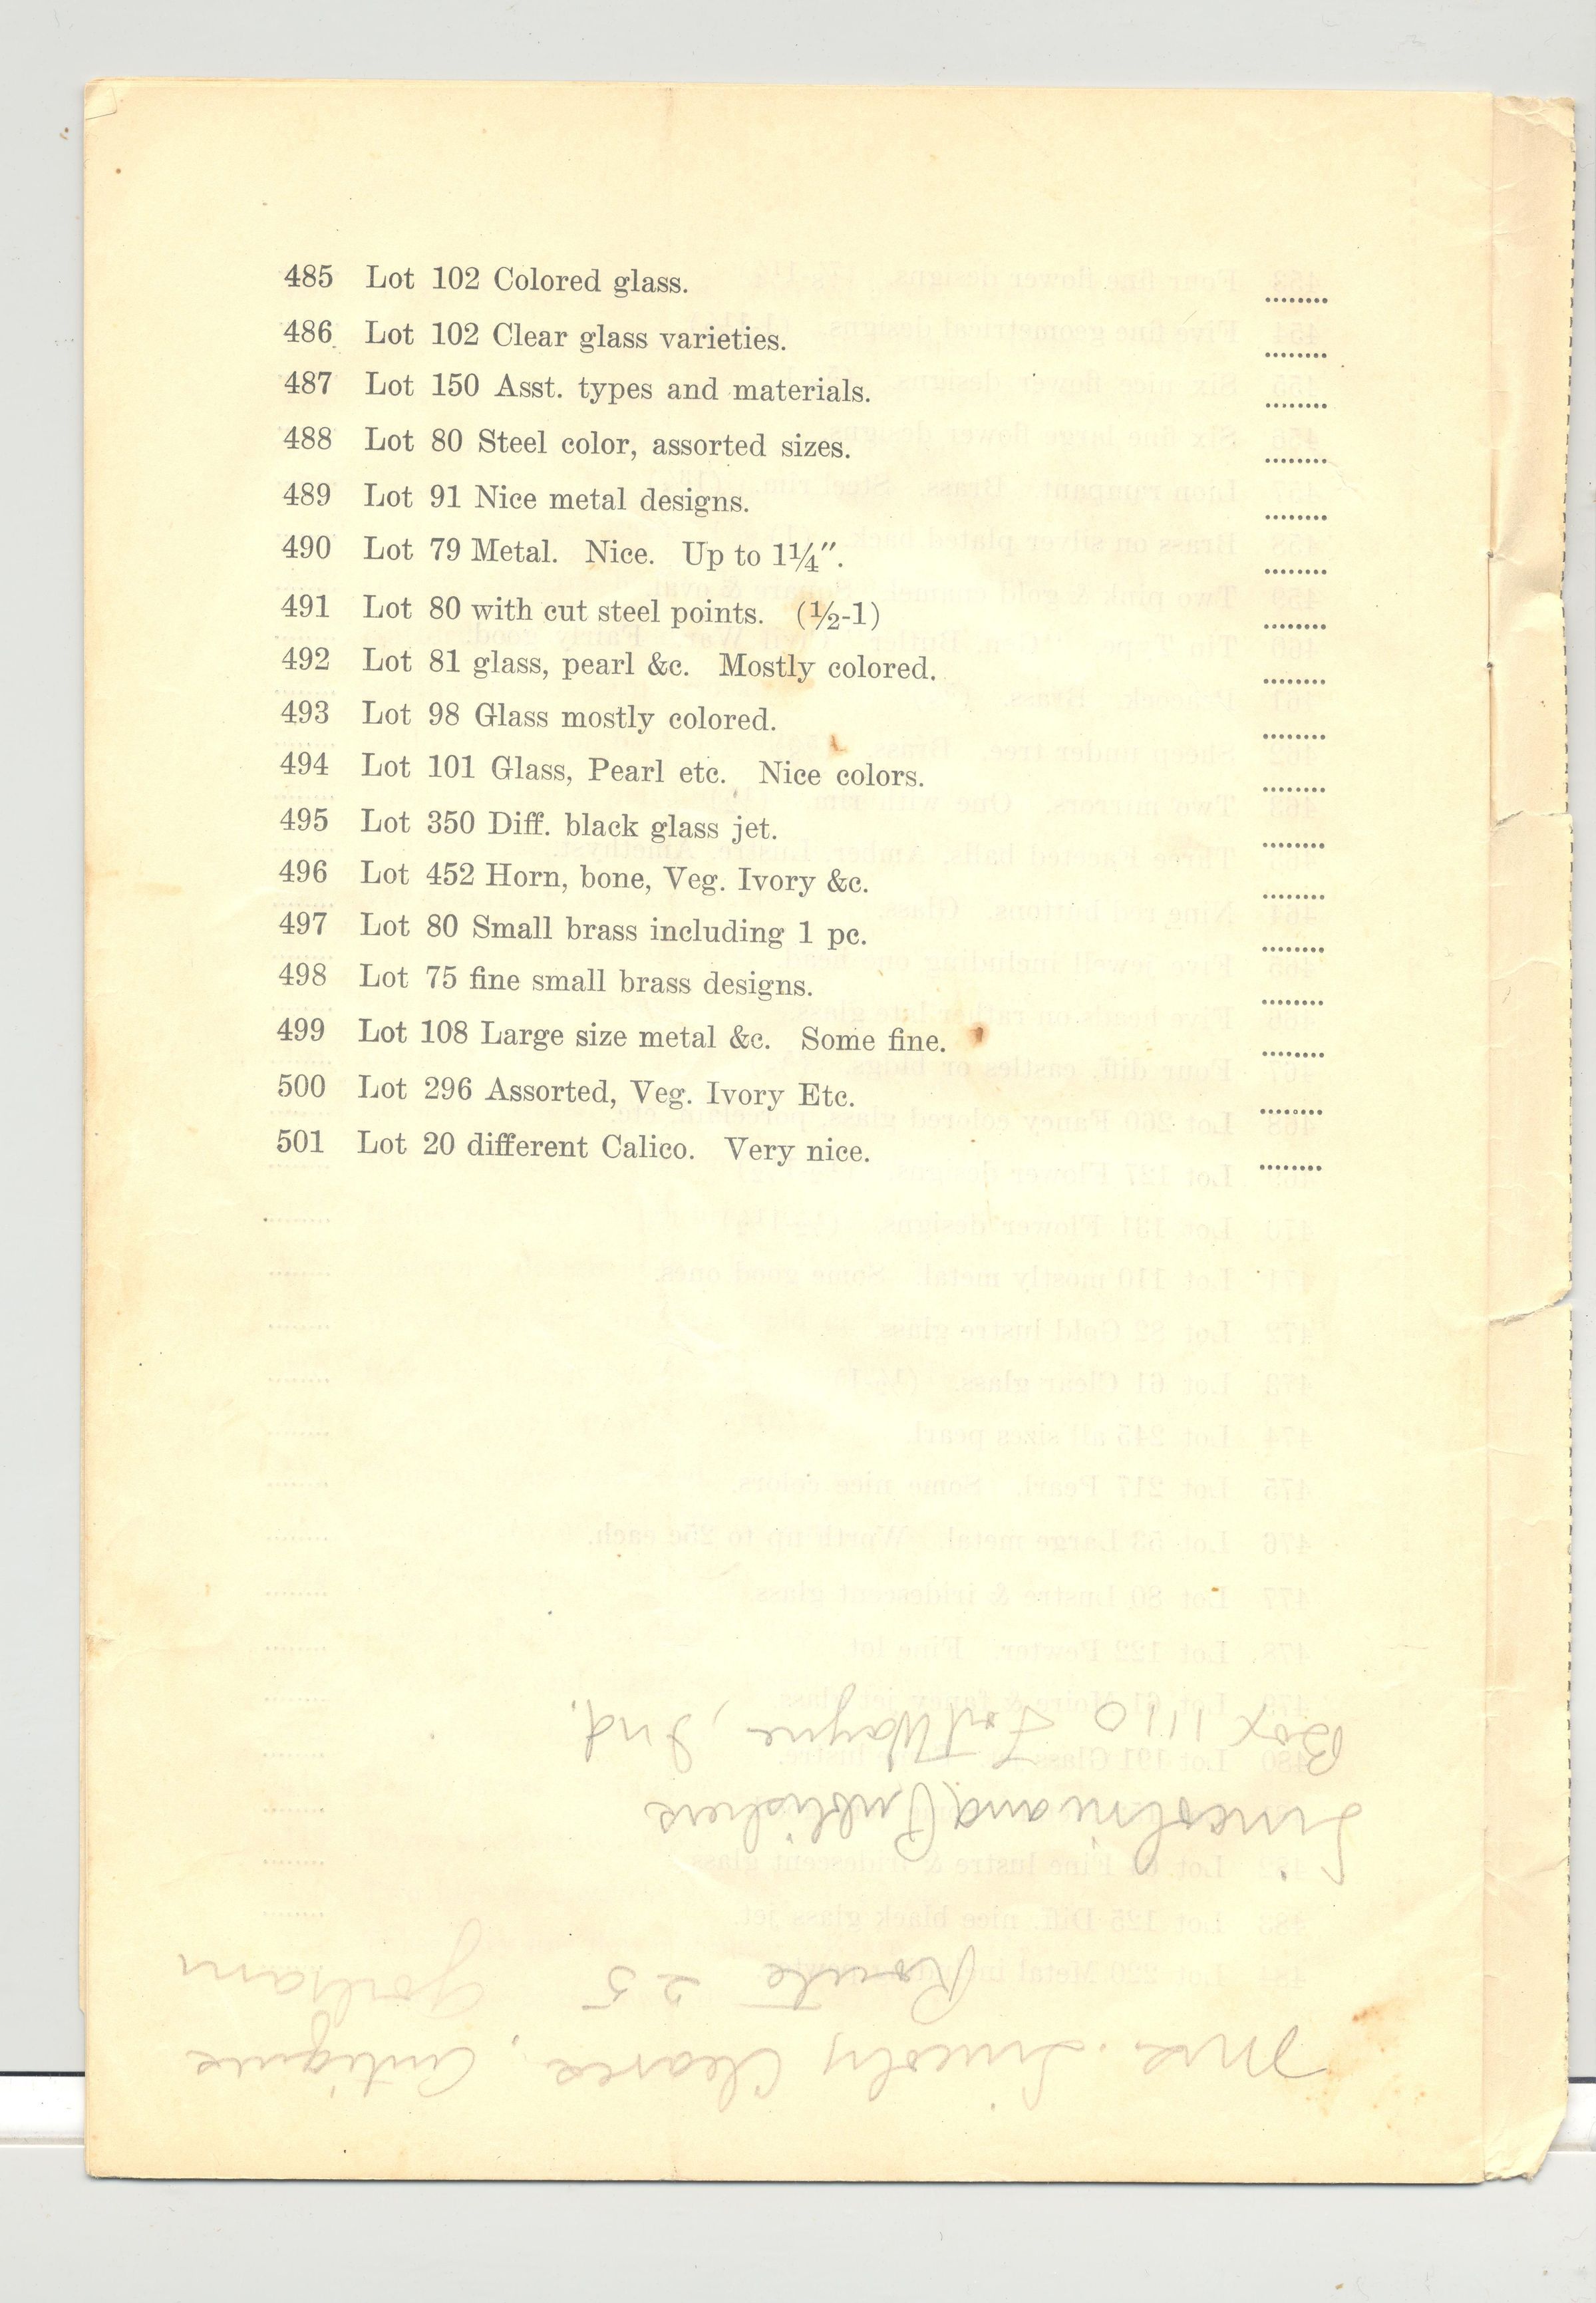 485 Lot 102 Colored glass. ........
486 Lot 102 Clear glass varieties. ........
487 Lot 150 Asst. types and materials. ........
488 Lot 80 Steel color, assorted sizes. ........
489 Lot 91 Nice metal designs. ........
490 Lot 79 Metal. Nice. Up to 1¼″. ........
491 Lot 80 with cut steel points. (½-1) ........
492 Lot 81 glass, pearl &c. Mostly colored. ........
493 Lot 98 Glass mostly colored. ........
494 Lot 101 Glass, Pearl etc. Nice colors. ........
495 Lot 350 Diff. black glass jet. ........
496 Lot 452 Horn, bone, Veg. Ivory &c. ........
497 Lot 80 Small brass including 1 pc. ........
498 Lot 75 fine small brass designs. ........
499 Lot 108 Large size metal &c. Some fine. ........
500 Lot 296 Assorted, Veg. Ivory Etc. ........
501 Lot 20 different Calico. Very nice. ........
Mrs. Lincoln Cleaves, Antiques
Route 25 Gorham
Lincolniana Publishers
Box 1110 Fort Wayne, Ind.